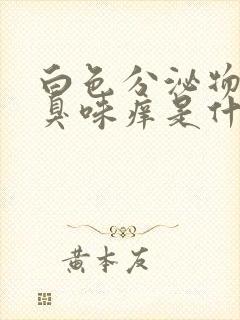 白色分泌物
臭味痒是什
黄本友